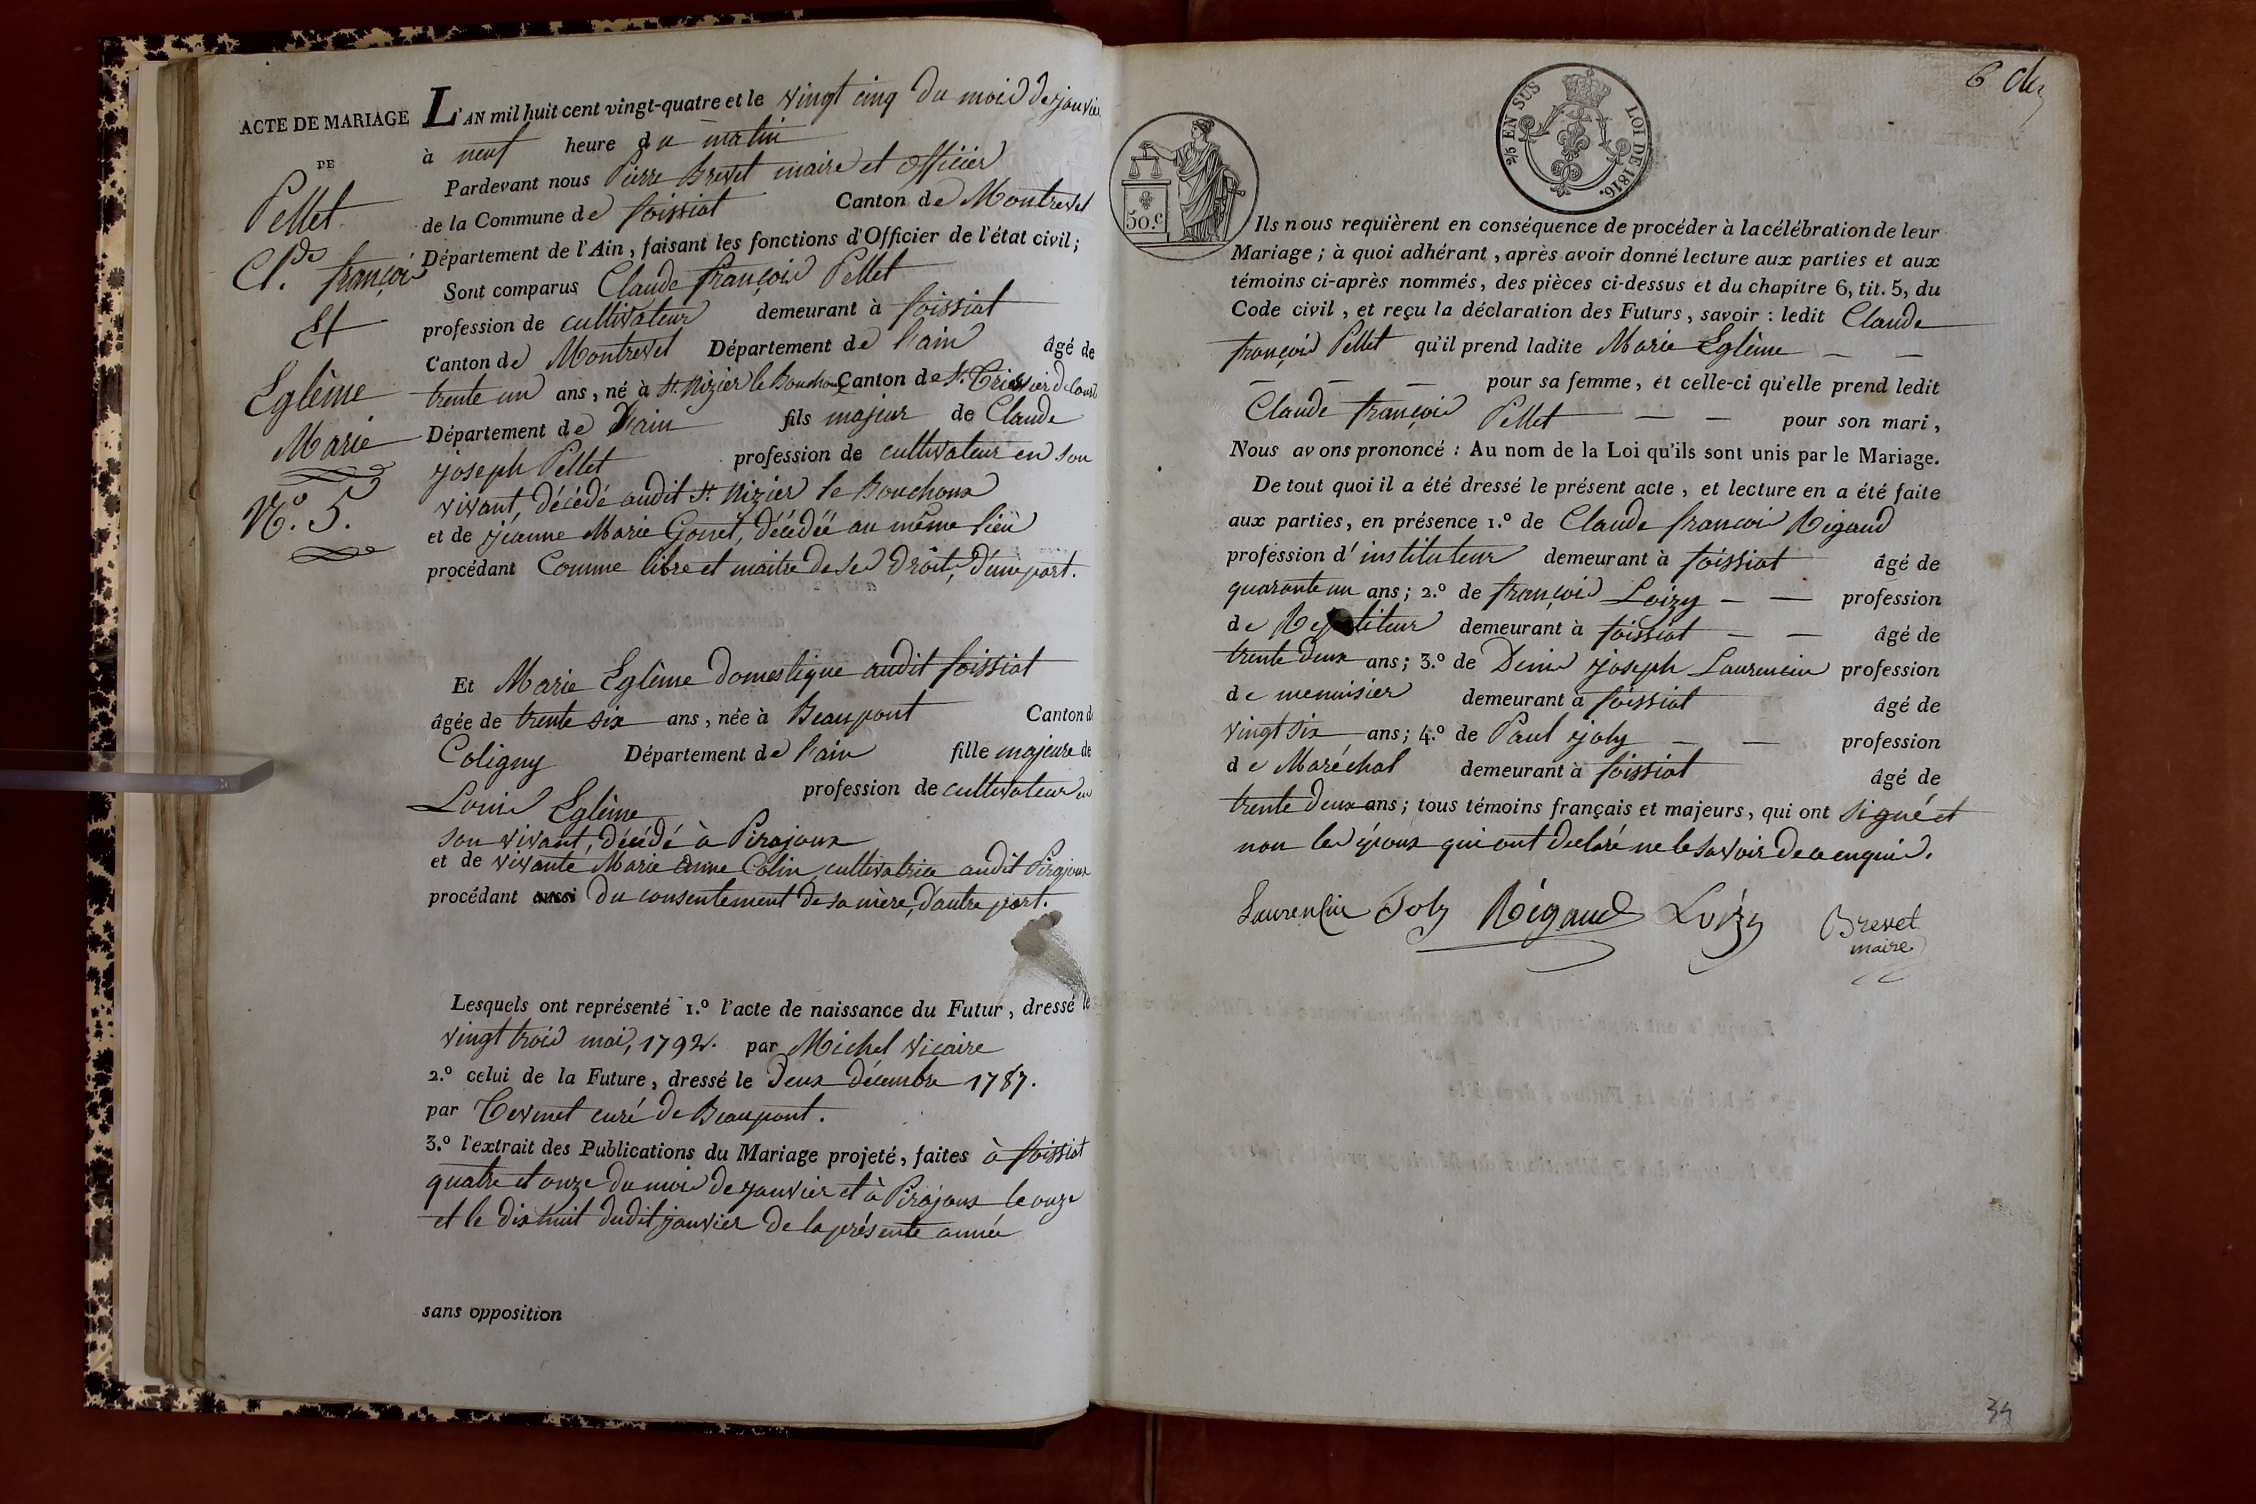 ACTE DE MARIAGE
DE
Pellet
Cl.de françois
Et
Eglème
Marie
N.o 5.
L'AN mil huit cent vingt-quatre et le vingt cinq du mois de janvier
à neuf heure du matin
Pardevant nous Pierre Brevet maire et officier
de la Commune de foissiat Canton de Montrevel
Département de l'Ain, faisant les fonctions d'Officier de l'état civil;
Sont comparus Claude françois Pellet
profession de cultivateur demeurant à foissiat
Canton de Montrevel Département de l'ain âgé de
trente un ans, né à St. Nizier le Bouchoux Canton de St. Trivier de Courtes
Département de l'ain fils majeur de Claude
joseph Pellet profession de cultivateur en son
vivant, décédé audit St Nizier le Bouchoux
et de jeanne Marie Gonet, décédée au même lieu
procédant Comme libre et maitre de ses droits, d'une part.
Et Marie Eglème domestique audit foissiat
âgée de trente six ans, née à Beaupont Canton de
Coligny Département de l'ain fille majeure de
Louis Eglème profession de cultivateur en
son vivant, décédé à Pirajoux
et de vivante Marie anne Colin cultivatrice audit Pirajoux
procédant du consentement de sa mère, d'autre part.
Lesquels ont représenté 1.o l'acte de naissance du Futur, dressé le
vingt trois mai, 1792. par Michel vicaire
2.o celui de la Future, dressé le deux décembre 1787.
par Tevenet curé de Beaupont.
3.o l'extrait des Publications du Mariage projeté, faites à foissiat
quatre et onze du mois de janvier et à Pirajoux le onze
et le dix huit dudit janvier de la présente année
sans opposition
6 
2/5 EN SUS LOI DE 1816.
50.c
Ils nous requièrent en conséquence de procéder à la célébration de leur
Mariage; à quoi adhérant, après avoir donné lecture aux parties et aux
témoins ci-après nommés, des pièces ci-dessus et du chapitre 6, tit. 5, du
Code civil, et reçu la déclaration des Futurs, savoir: ledit Claude
françois Pellet qu'il prend ladite Marie Eglème — —
— — — pour sa femme, et celle-ci qu'elle prend ledit
Claude françois Pellet — — pour son mari,
Nous avons prononcé: Au nom de la Loi qu'ils sont unis par le Mariage.
De tout quoi il a été dressé le présent acte, et lecture en a été faite
aux parties, en présence 1.o de Claude francois Rigaud
profession d'instituteur demeurant à foissiat âgé de
quarante un ans; 2.o de françois Loizy — — profession
de Repétiteur demeurant à foissiat — — âgé de
trente deux ans; 3.o de Denis joseph Laurencin profession
de menuisier demeurant à foissiat âgé de
vingt six ans; 4.o de Paul joly — — profession
de Maréchal demeurant à foissiat âgé de
trente deux ans; tous témoins français et majeurs, qui ont signé et
non les époux qui ont declaré ne le savoir de ce enquis.
Laurencin Joly Rigaud Loizy Brevet
maire
34